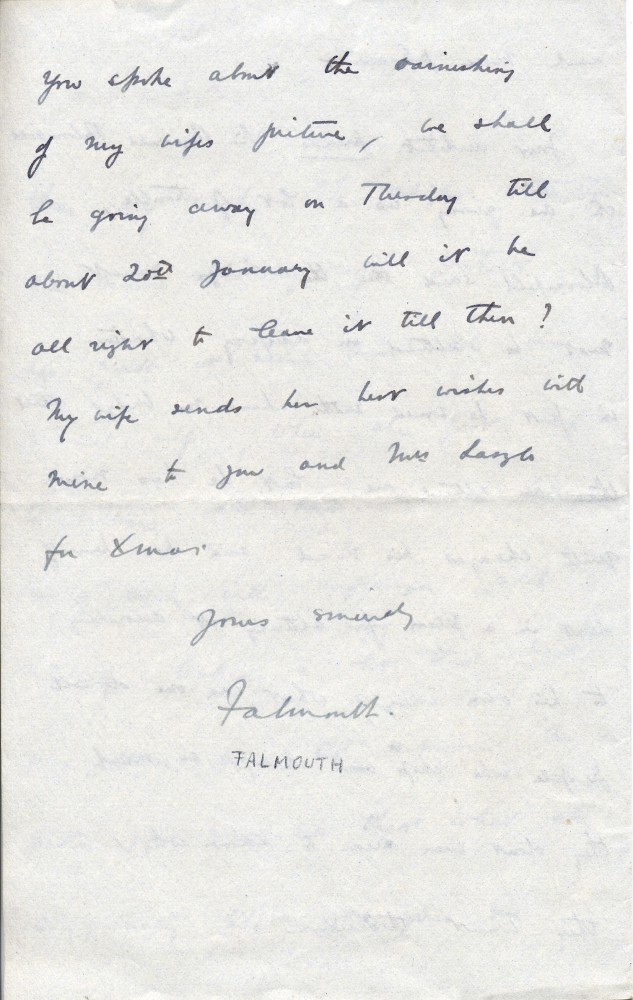 You spoke about the varnishing
of my wifes picture, we shall
be going away on Thursday till
about 20th January will it be
all right to leave it till then?
My wife sends her best wishes with
mine to you and Mrs Laszlo
for Xmas.
Yours sincerely
Falmouth.
FALMOUTH